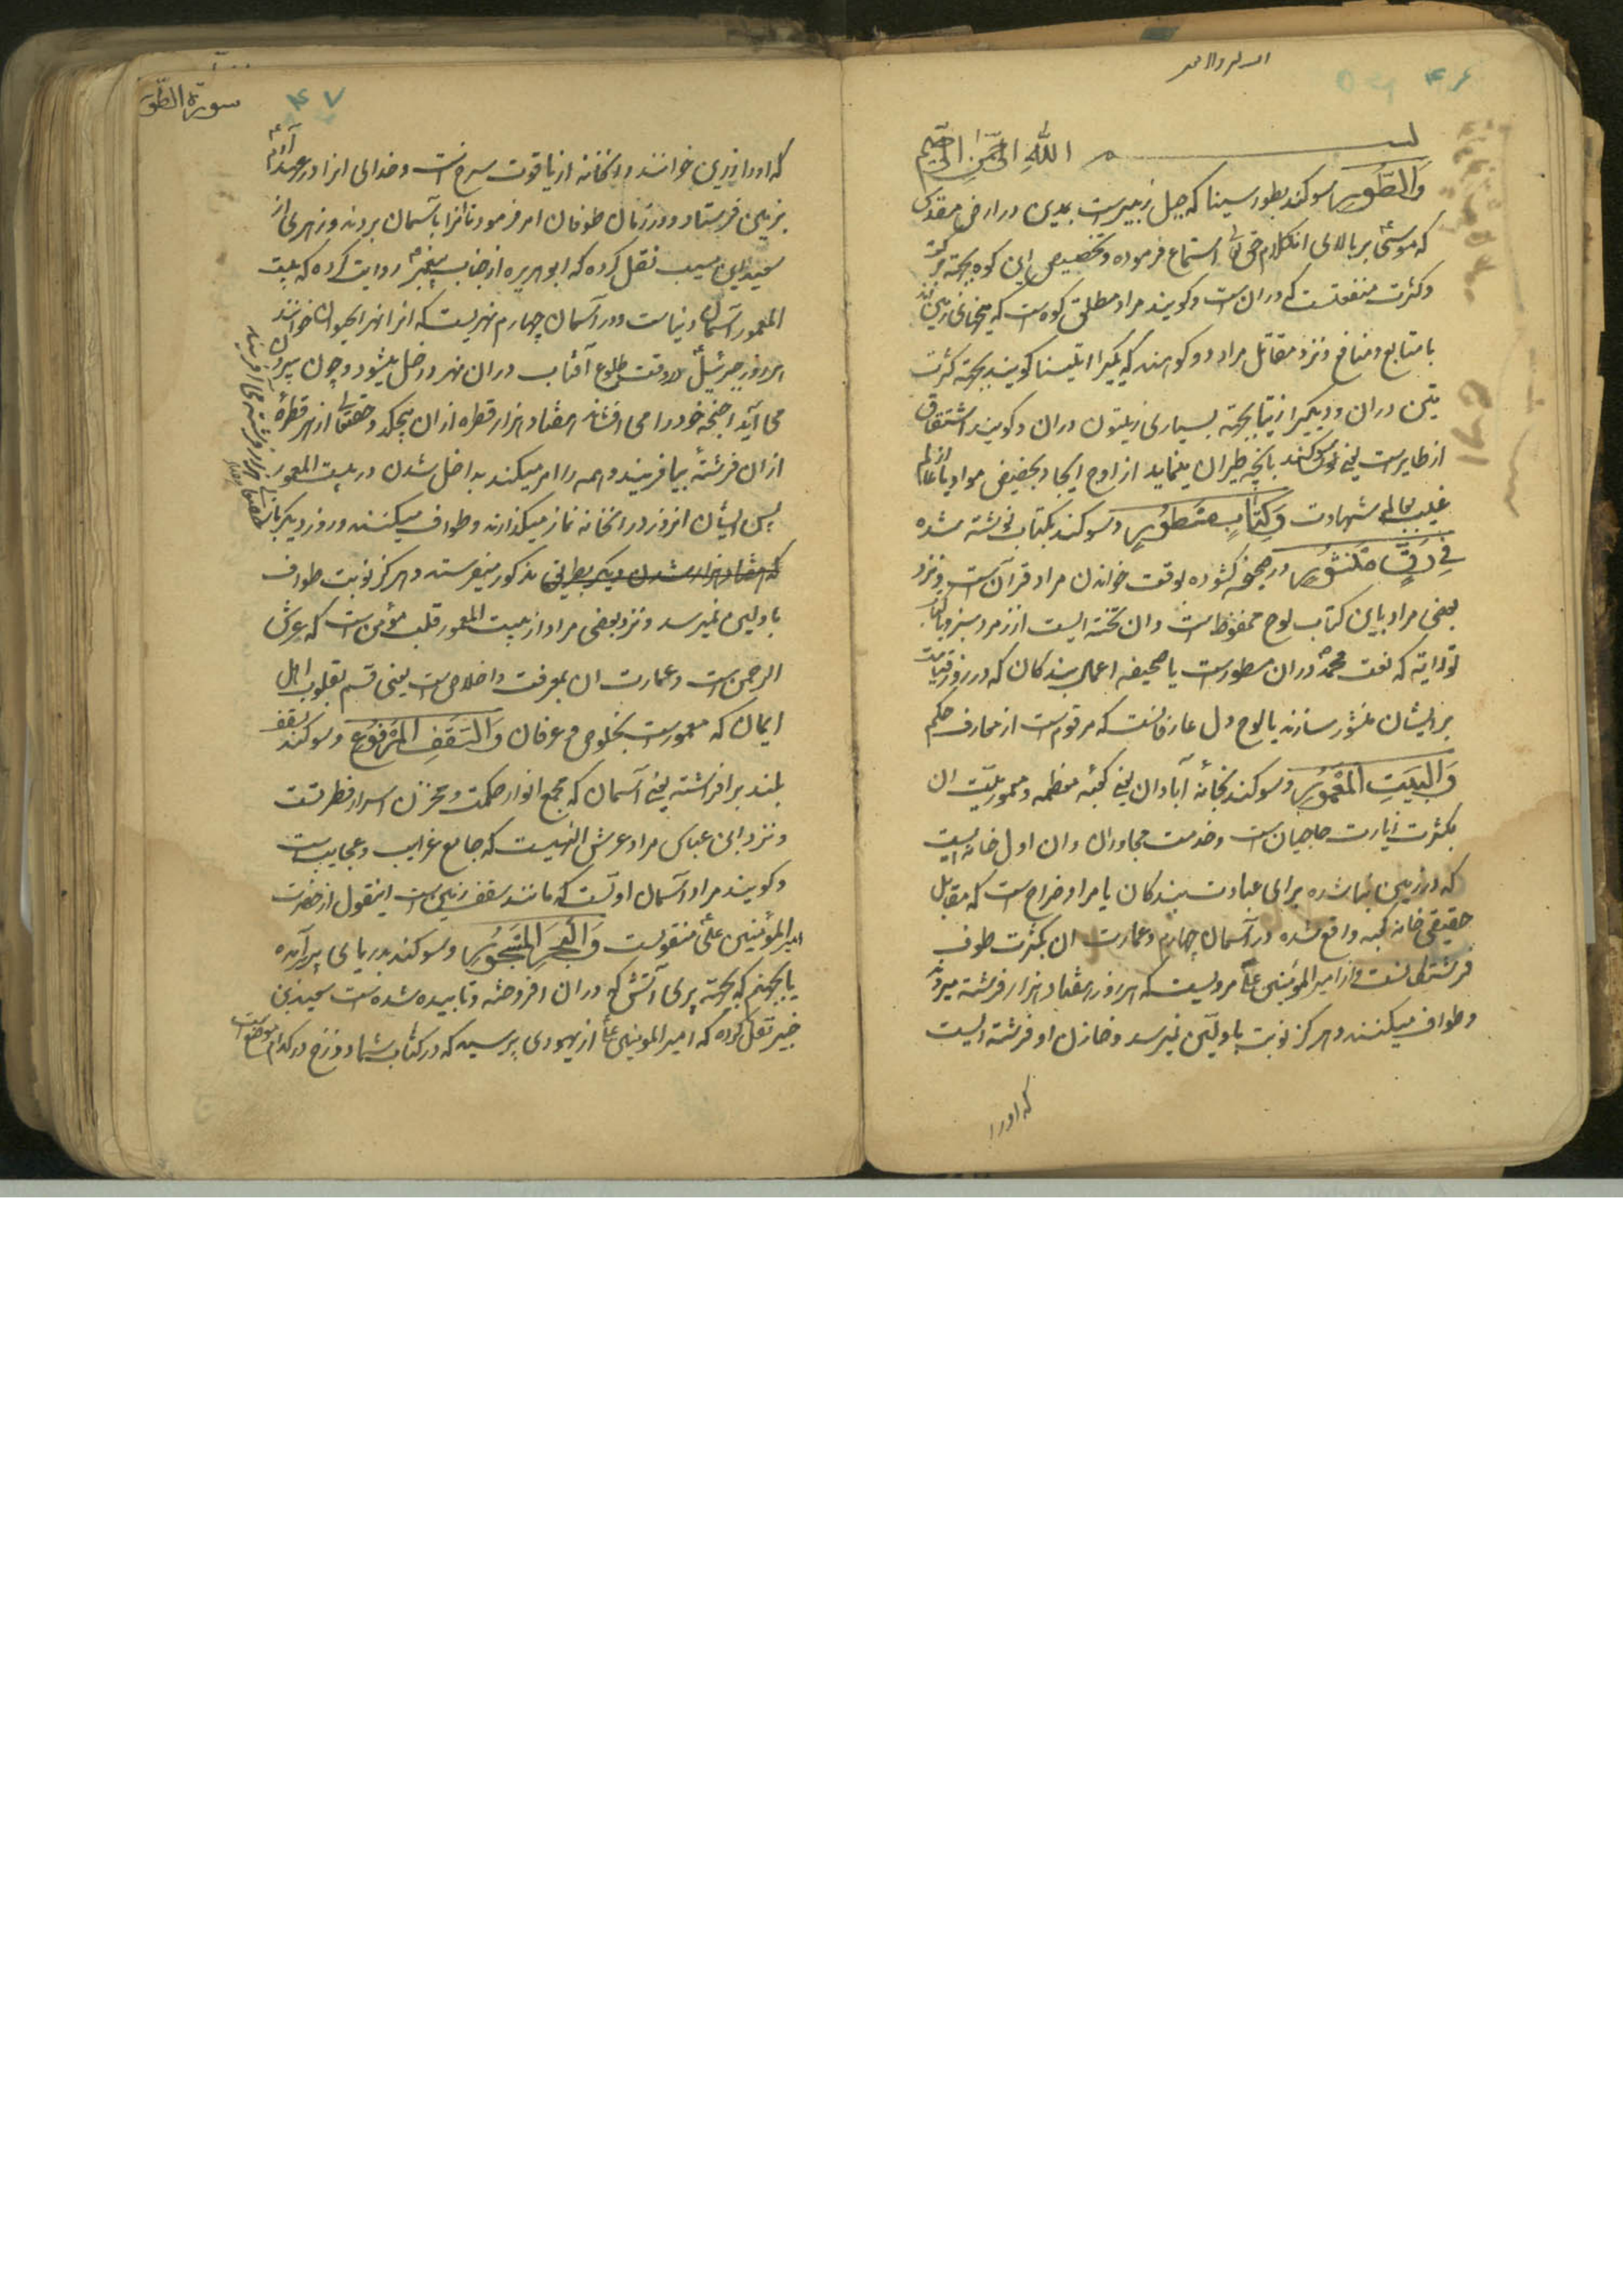 ۴۶
بسم الله الرحمن الرحیم
وَالطُّورِ سوکند بطور سینا که جبل زبیرست بمدین در ارض مقدس
که موسی بر بالای ان کلام حق تعالی استماع فرموده و تخصیص این کوه بجهة برکت
و کثرت منفعتست که در ان است و کویند مراد مطلق کوه ست که میخهای زمین اند
با منابع و منافع و نزد مقاتل مراد دو کوه اند که یکیرا تینا کویند بجهة کثرت
تین در ان و دیکیرا زیتا بجهة بسیاری زیتون در ان و کویند اشتقاق
از طایرست یعنی سوکند بانچه طیران مینماید از اوج ایجاد بحضیض مواد یا از عالم
غیب بعالم شهادت وَكِتَابٍ مَسْطُورٍ و سوکند بکتاب نوشته شده
فِي رَقٍّ مَنْشُورٍ در صحیفه کشوده بوقت خواندن مراد قرآن ست و نزد
بعضی مراد باین کتاب لوح محفوظ است و ان تخته ایست از زمرد سبز و یا کتاب
توراته که نعت محمد در ان مسطورست یا صحیفه اعمال بندکان که در روز قیامت
بر ایشان منشور سازند یا لوح دل عارفانست که مرقوم ست از معارف حکم
وَالْبَيْتِ الْمَعْمُورِ و سوکند بخانه آبادان یعنی کعبه معظمه و معموریت ان
بکثرت زیارت حاجیان ست و خدمت مجاوران و ان اول خانه ایست
که در زمین بنا شده برای عبادت بندکان یا مراد ضراح ست که مقابل
حقیقی خانه کعبه واقع شده در آسمان چهارم و عمارت ان بکثرت طوف
فرشتکانست و از امیر المؤمنین علی مرویست که هر روز هفتاد هزار فرشته میروند
و طواف میکنند و هرکز نوبت باولین نمیرسد و خازن او فرشته ایست
که او را
سورة الطور
۴۷
که او را زرین خوانند و انخانه از یاقوت سرخ است و خدای انرا در عهد آدم
بزمین فرستاد و در زمان طوفان امر فرمود تا انرا بآسمان بردند و زهری از
سعید بن مسیب نقل کرده که ابو هریره از جناب پیغمبر روایت کرده که بیت
المعمور آسمان دنیاست و در آسمان چهارم نهریست که انرا نهر الحیوان خوانند
هر روز جبرئیل در وقت طلوع آفتاب در ان نهر داخل میشود و چون بیرون
می آید اجنحه خود را می افشاند هفتاد هزار قطره از ان بچکد و حقتعالی از هر قطره
از ان فرشته بیافریند و همه را امر میکند بداخل شدن در بیت المعمور
پس ایشان انروز در انخانه نماز میکذارند و طواف میکنند و روز دیکر باز
که هفتاد هزار شدن دیکر بطریق مذکور میفرستد و هرکز نوبت طواف
باولین نمیرسد و نزد بعضی مراد از بیت المعمور قلب مؤمن است که عرش
الرحمن ست و عمارت ان بمعرفت و اخلاص ست یعنی قسم بقلوب اهل
ایمان که معمورست بخلوص و عرفان وَالسَّقْفِ الْمَرْفُوعِ و سوکند بسقف
بلند برافراشته یعنی آسمان که مجمع انوار حکمت و مخزن اسرار فطرتست
و نزد ابن عباس مراد عرش الهیست که جامع غرایب و عجایب است
و کویند مراد آسمان اولست که مانند سقف زمین ست اینقول از حضرت
امیر المؤمنین علی منقولست وَالْبَحْرِ الْمَسْجُورِ و سوکند بدریای پر آمده
یا بجهنم که بجهة پری آتش که در ان افروخته و تابیده شده ست سعید بن
جبیر نقل کرده که امیر المومنین علی از یهودی پرسید که در کتاب شما دوزخ در کدام موضع است